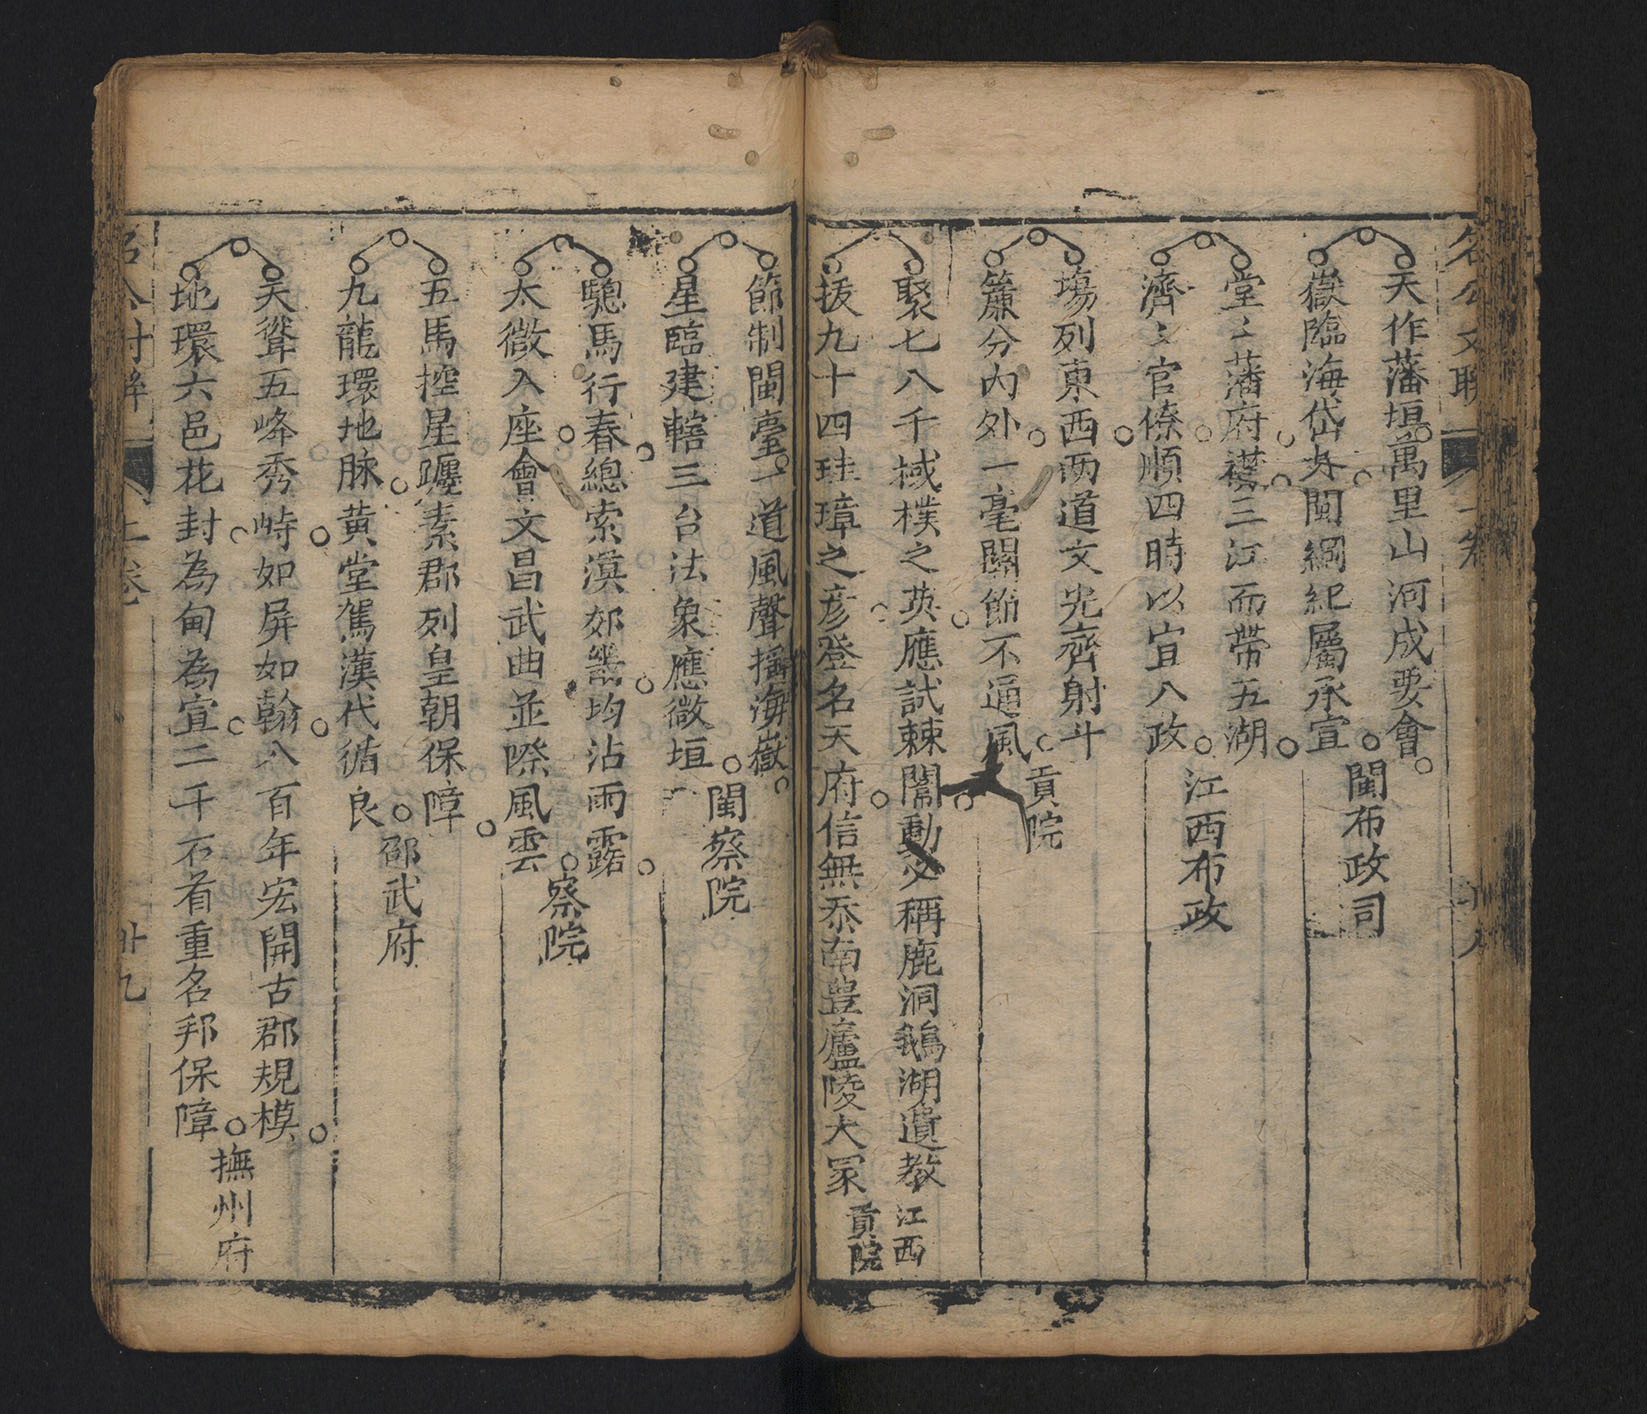 天作藩垣萬里山河成要會
嶽臨海岱八閩綱紀屬承宣
閩布政司
堂〻藩府襟三江而帶五湖
濟〻官僚順四時以宜八政
江西布政
場列東西兩道文光齊射斗
簾分內外一毫關節不通風
貢院
聚七八千棫樸之英應試棘闈動必稱鹿洞鵝湖遺教
拔九十四珪璋之彥登名天府信無忝南豊廬陵大家
江西
貢院
節制閩臺一道風聲搖海嶽
星臨建轄三台法象應微垣
閩察院
驄馬行春總索漠郊畿均沾雨露
太微入座會文昌武曲並際風雲
察院
五馬控星躔素郡列皇朝保障
九龍環地脉黄堂駕漢代循良
邵武府
天聳五峰秀峙如屏如翰八百年宏開古郡規模
地環六邑花封為甸為宣二千石首重名邦保障
撫州府
上卷
廿九